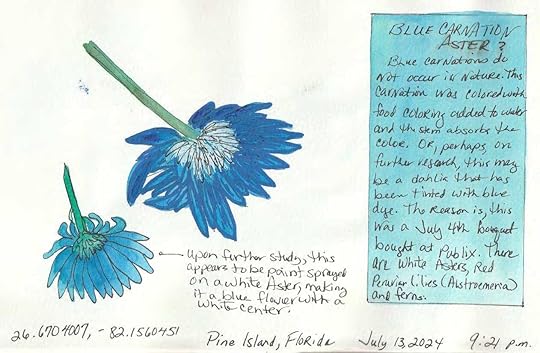 BLUE CARNATION
ASTER?
Blue carnations do
not occur in nature. This
carnation was colored with
food coloring added to water
and the stem absorbs the
color. Or, perhaps, on
further research, this may
be a dahlia that has
been tinted with blue
dye. The reason is, this
was a July 4th boquet
bought at Publix. There
are white Asters, Red
Peruvian Lilies (Alstroemeria)
and ferns.
Upon further study, this
appears to be paint sprayed
on a white Aster, making
it a blue flower with a
white center.
26.6704007, -82.1560451
Pine Island, Florida
July 13, 2024
9:21 p.m.